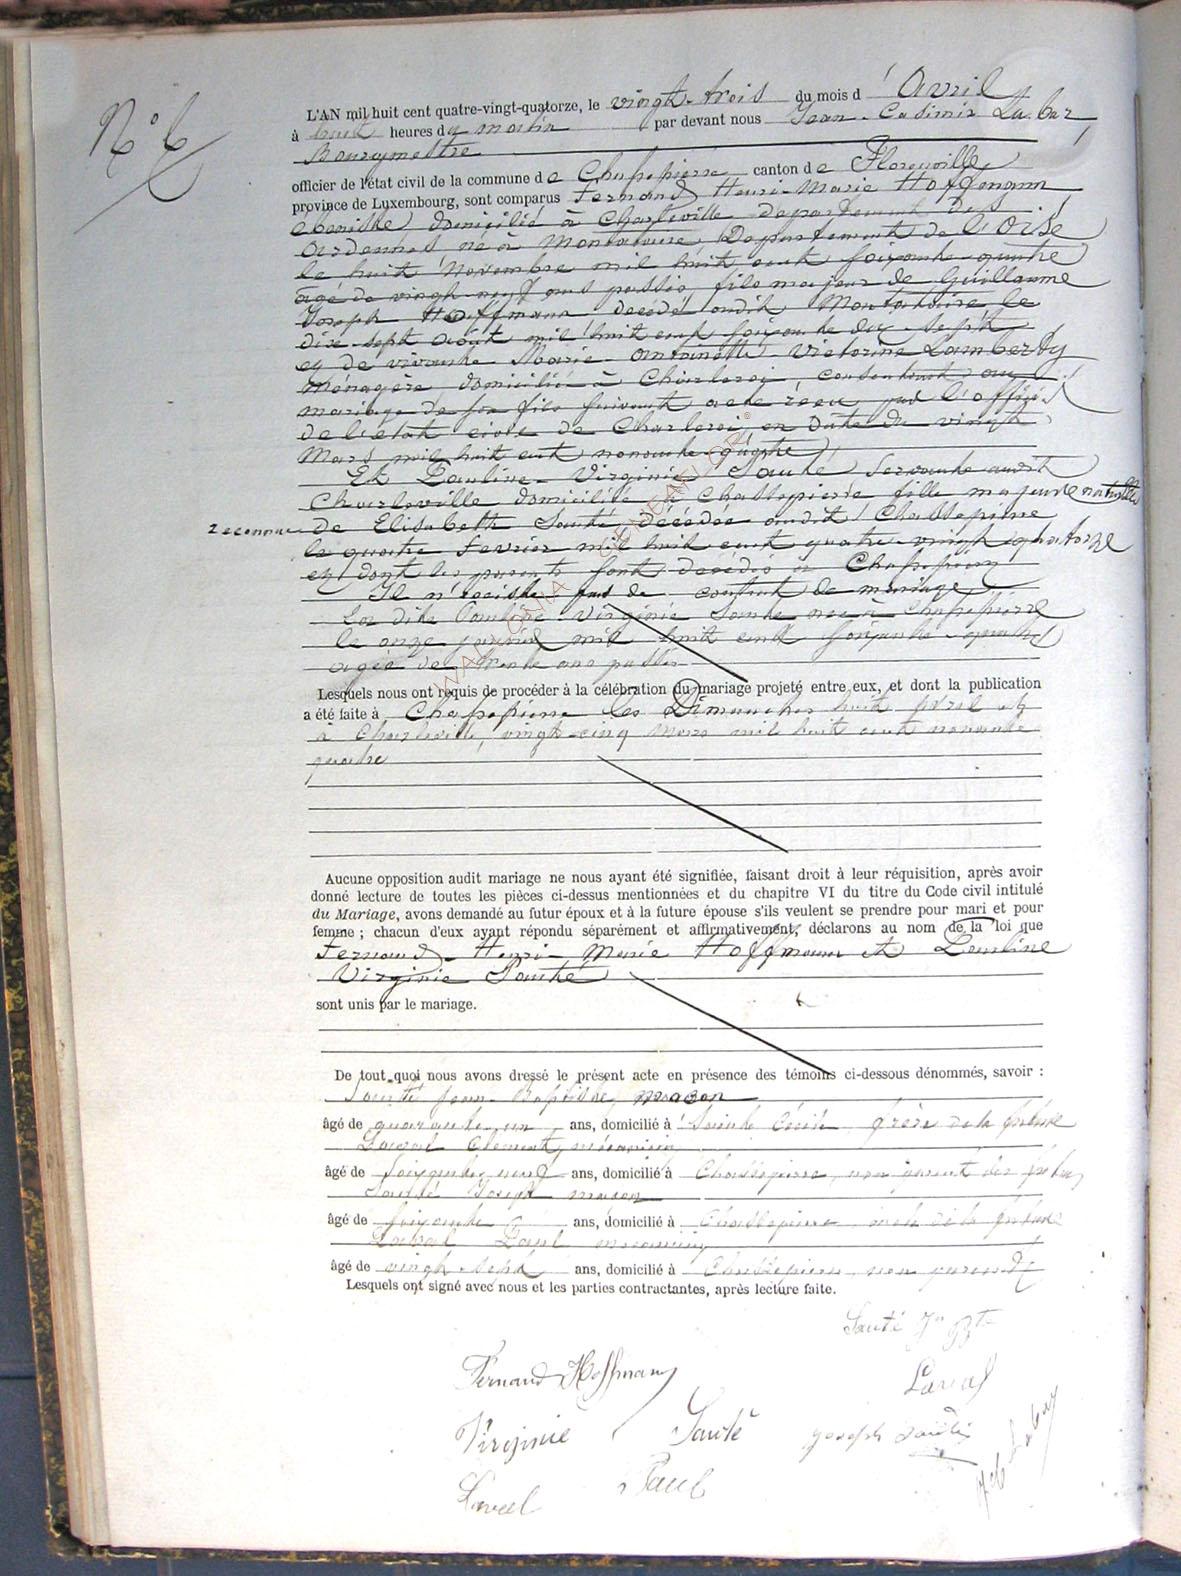 N° 6
L'AN mil huit cent quatre-vingt-quatorze, le vingt-trois du mois d'Avril
à huit heures du matin par devant nous Jean-Casimir Labar,
Bourgmestre
officier de l'état civil de la commune de Chassepierre canton de Florenville,
province de Luxembourg, sont comparus Fernand Henri-Marie Hoffmann
ébéniste, domicilié à Charleville département des
Ardennes né à Montataire, Département de l'Oise
le huit Novembre mil huit cent soixante-quatre
âgé de vingt-neuf ans passés, fils majeur de Guillaume
Joseph Hoffmann décédé audit Montataire le
dix-sept août mil huit cent soixante dix-sept
et de vivante Marie-Antoinette-Victorine Lamberty
ménagère domiciliée à Charleroi, consentant au
mariage de son fils suivant acte reçu par l'officier
de l'état civil de Charleroi, en date du vingt
Mars mil huit cent nonante-quatre,
Et Pauline-Virginie Santé servante audit
Charleville domiciliée à Chassepierre fille majeure naturelle
reconnue de Elisabeth Santé, décédée audit Chassepierre
le quatre Février mil huit cent quatre-vingt-quatorze
et dont les parents sont décédés à Chassepierre
Il n'existe pas de contrat de mariage
La dite Pauline-Virginie Santé née à Chassepierre
le onze janvier mil huit cent soixante-quatre
âgée de trente ans passés
Lesquels nous ont requis de procéder à la célébration du mariage projeté entre eux, et dont la publication
a été faite à Chassepierre les Dimanches huit Avril et
à Charleville, vingt-cinq Mars mil huit cent nonante
quatre
Aucune opposition audit mariage ne nous ayant été signifiée, faisant droit à leur réquisition, après avoir
donné lecture de toutes les pièces ci-dessus mentionnées et du chapitre VI du titre du Code civil intitulé
du Mariage, avons demandé au futur époux et à la future épouse s'ils veulent se prendre pour mari et pour
femme ; chacun d'eux ayant répondu séparément et affirmativement, déclarons au nom de la loi que
Fernand-Henri-Marie Hoffmann et Pauline
Virginie Santé
sont unis par le mariage.
De tout quoi nous avons dressé le présent acte en présence des témoins ci-dessous dénommés, savoir :
Santé Jean-Baptiste, maçon
âgé de quarante un ans, domicilié à Sainte Cécile, frère de la future
Laval Clément, mécanicien
âgé de soixante neuf ans, domicilié à Chassepierre, non parent des futurs
Santé Joseph maçon
âgé de soixante ans, domicilié à Chassepierre, oncle de la future
Laval Paul mécanicien
âgé de vingt-sept ans, domicilié à Chassepierre non parent
Lesquels ont signé avec nous et les parties contractantes, après lecture faite.
Santé Jn Bte
Fernand Hoffmann
Laval
Virginie Santé
Joseph Santé
Laval Paul
J Cas Labar
WALLONIA GENEAFLOR ©